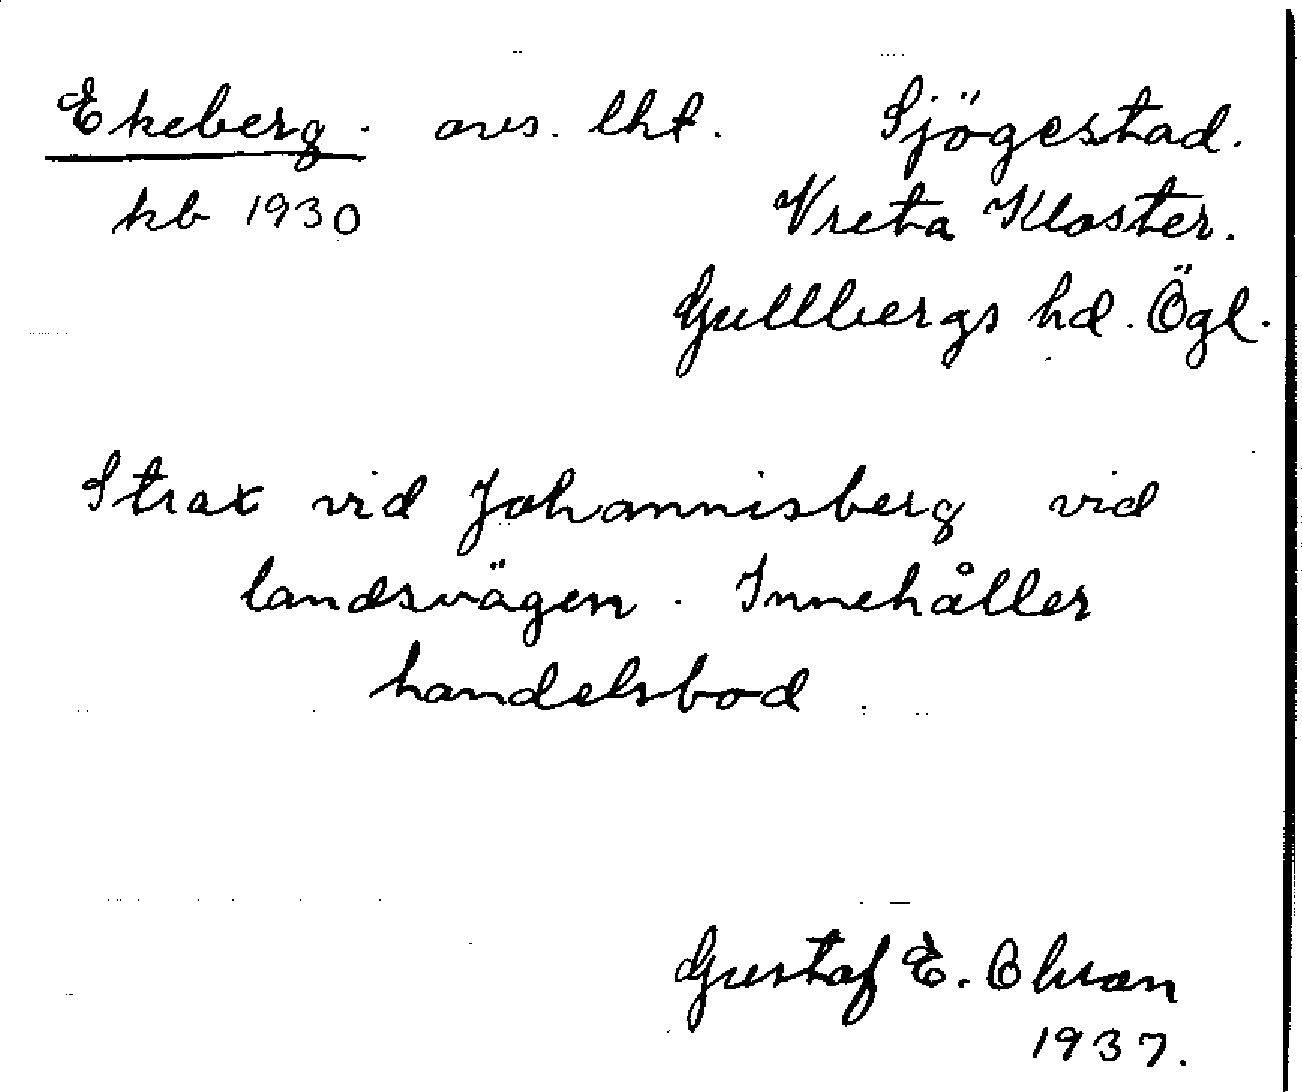 Ekeberg. avs. lht. Sjögestad.
kb 1930 Vreta Kloster.
Gullbergs hd. Ögl.
Strax vid Johannisberg vid
landsvägen. Innehåller
handelsbod
Gustaf E. Olsson
1937.